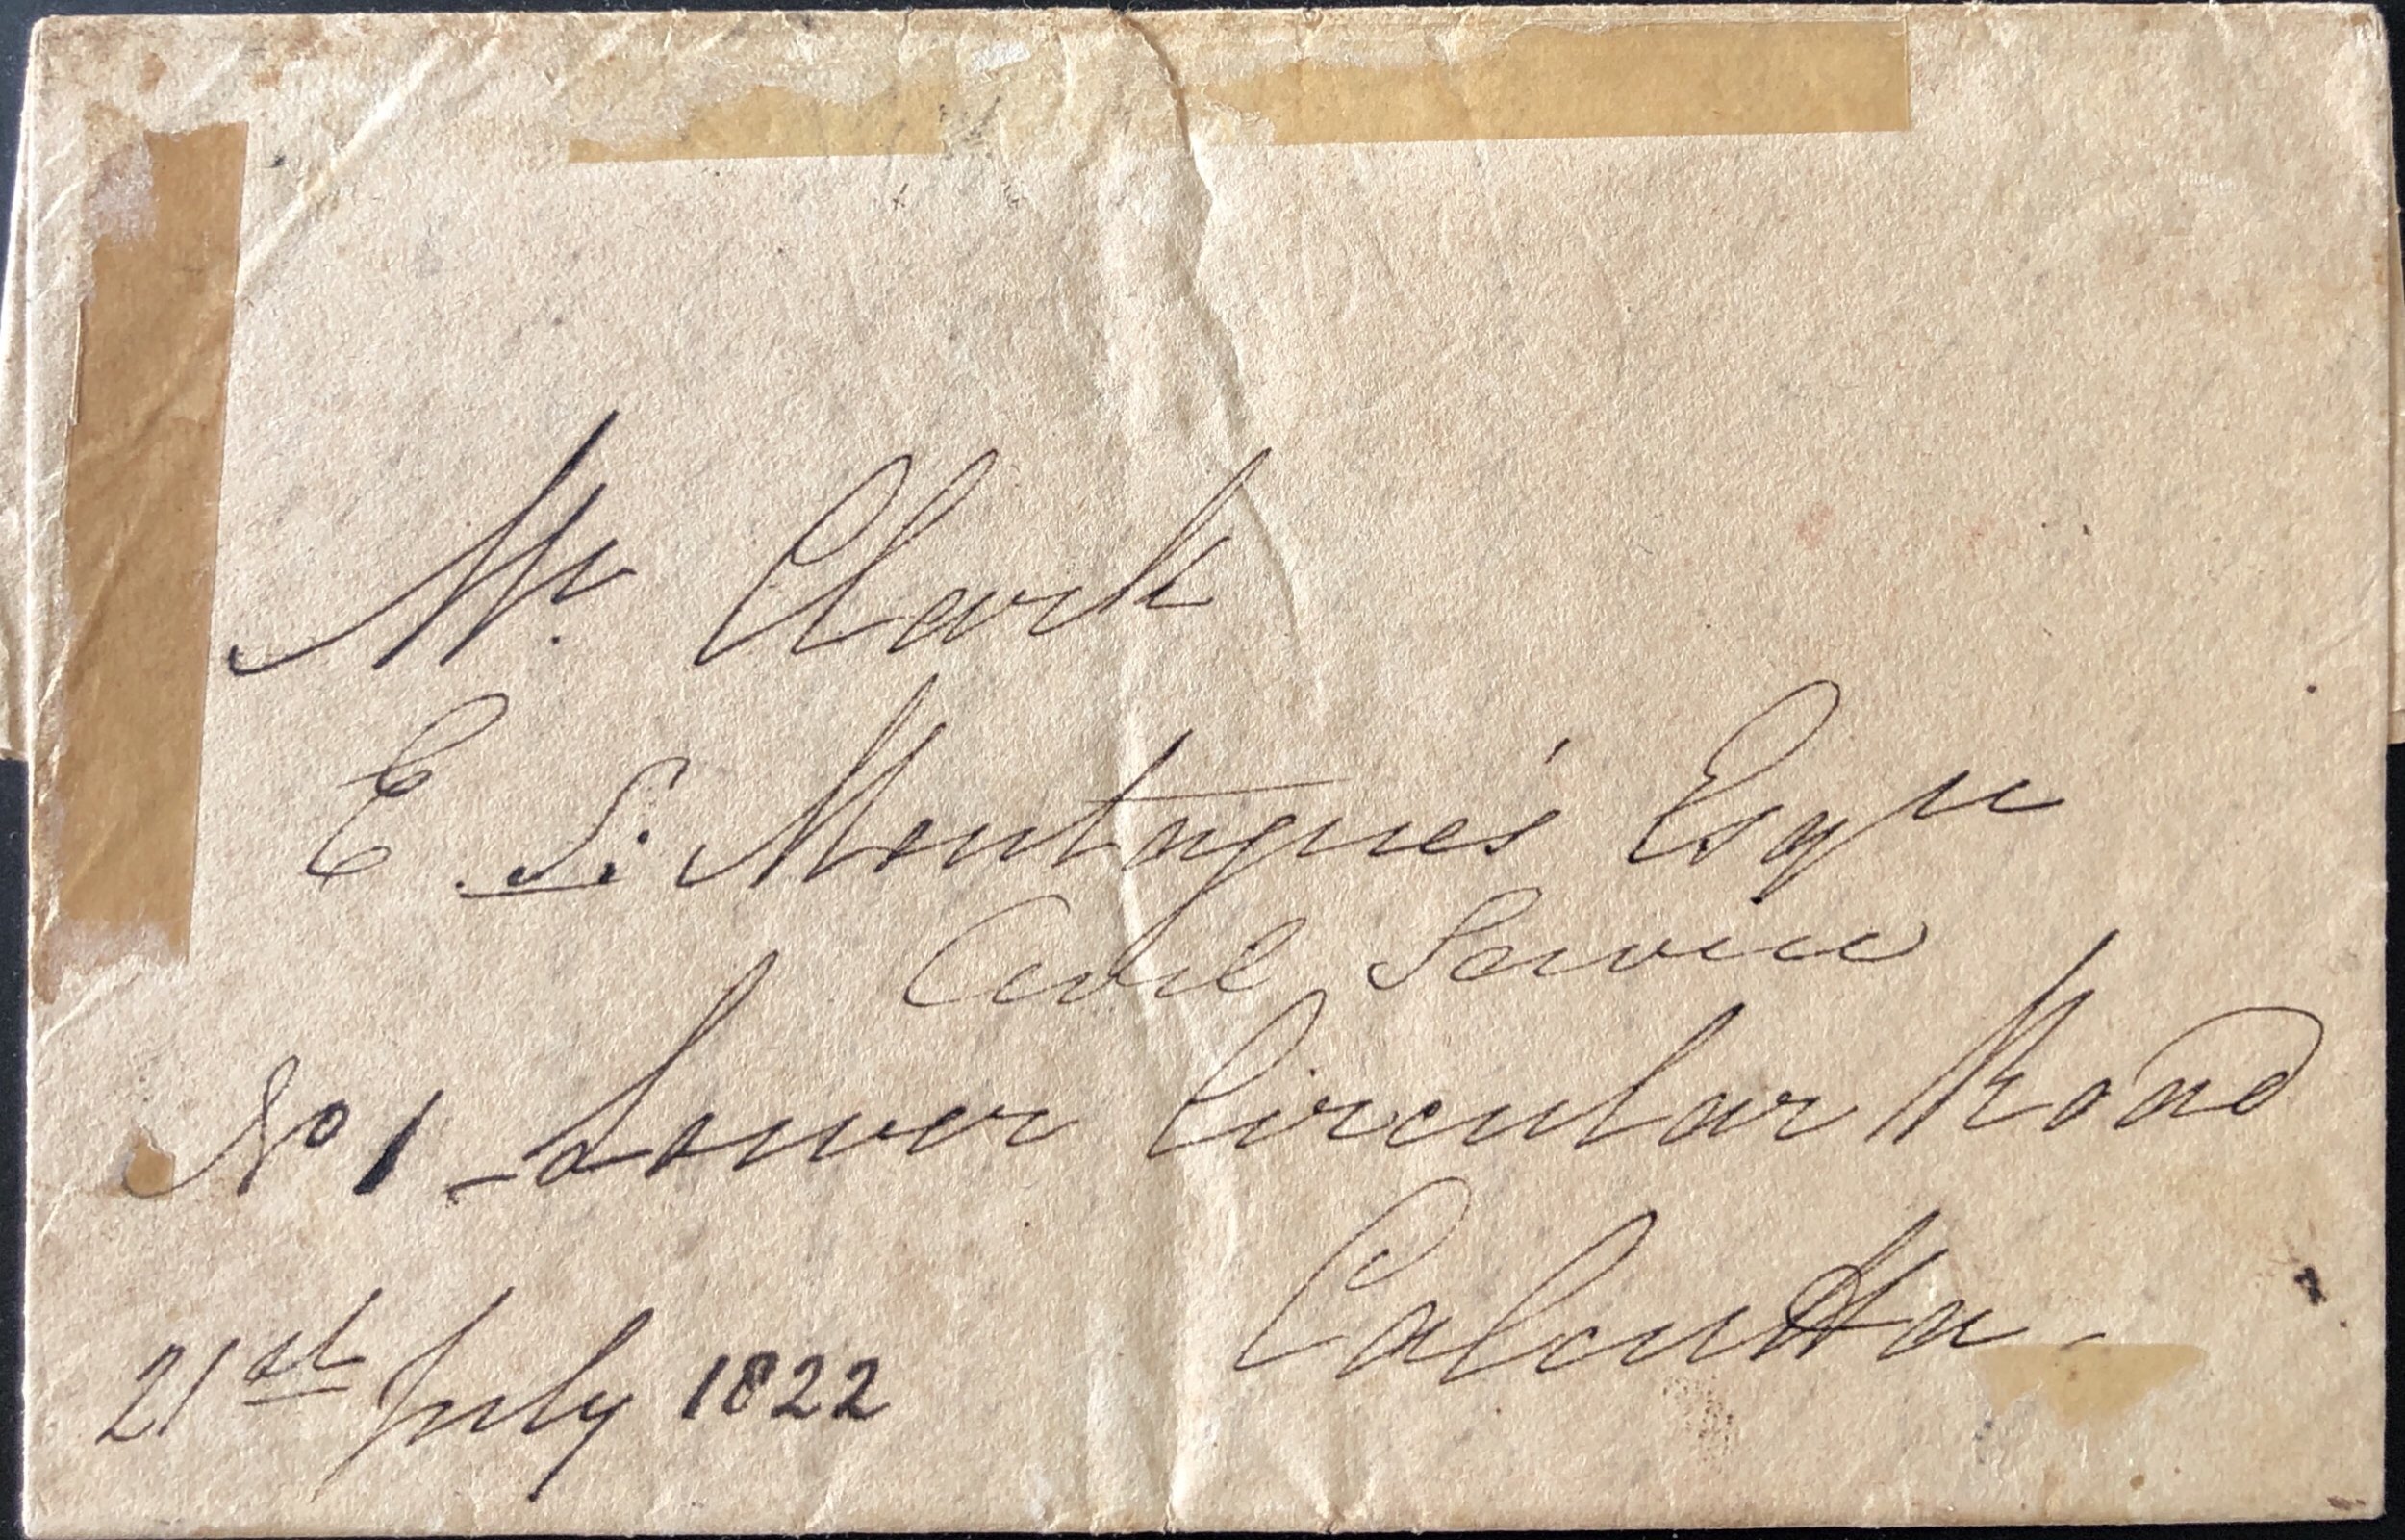 Mr. Clark
E. S. Montagues' Esqre
Civil Service
No 1 - Lower Circular Road
Calcutta -
21st July 1822